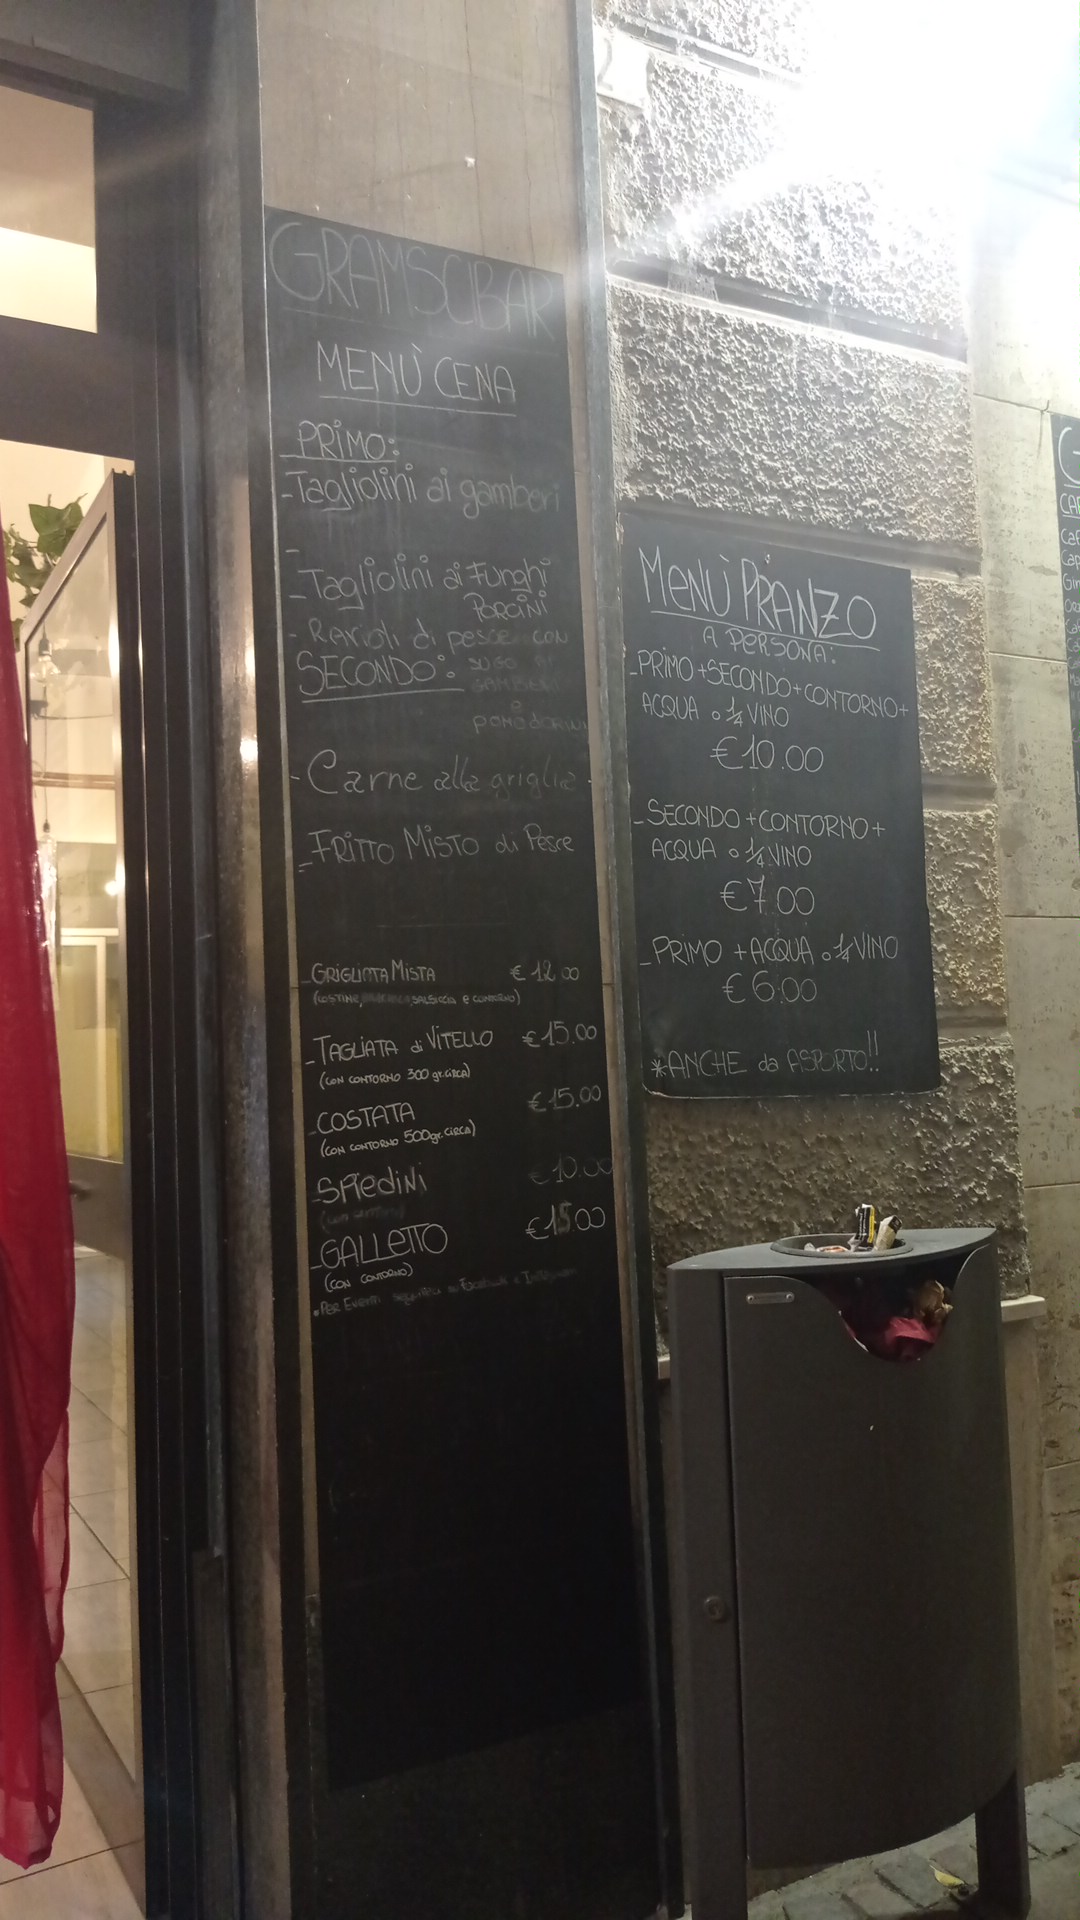 GRAMSCIBAR
MENÙ CENA
PRIMO:
-Tagliolini ai gamberi
-
-Tagliolini ai Funghi
PORCINI
- Ravioli di pesce con
SUGO DI
GAMBERI
e
POMODORINI
SECONDO:
- Carne alla griglia -
- FRITTO MISTO di Pesce
- GRIGLIATA MISTA € 12.00
(COSTINE, SALSICCIA E CONTORNO)
- TAGLIATA di VITELLO € 15.00
(CON CONTORNO 300 gr. CIRCA)
- COSTATA € 15.00
(CON CONTORNO 500gr. CIRCA)
- SPIEDINI € 10.00
- GALLETTO € 15.00
(CON CONTORNO)
• PER EVENTI SEGUITECI SU FACEBOOK E INSTAGRAM
MENÙ PRANZO
A PERSONA:
- PRIMO + SECONDO + CONTORNO +
ACQUA o 1/4 VINO
€ 10.00
- SECONDO + CONTORNO +
ACQUA o 1/4 VINO
€ 7.00
- PRIMO + ACQUA o 1/4 VINO
€ 6.00
*ANCHE da ASPORTO!!